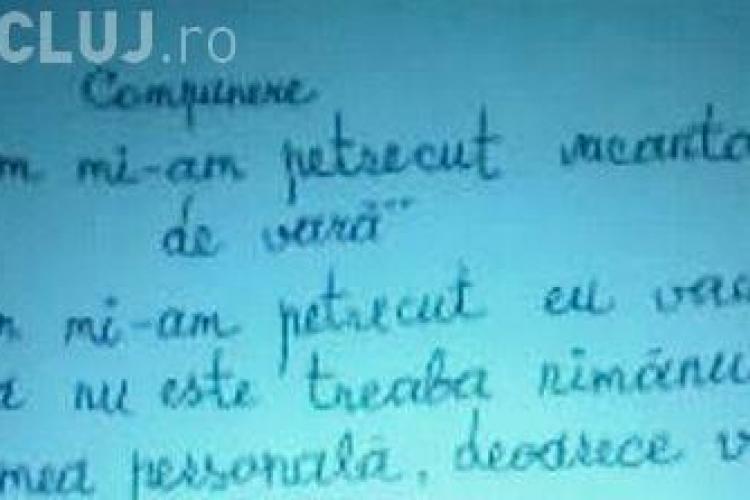 CLUJ.ro
Compunere
m mi-am petrecut vacanta
de vară"
n mi-am petrecut eu vac
a nu este treaba nimănu
mea personală, deoarece v